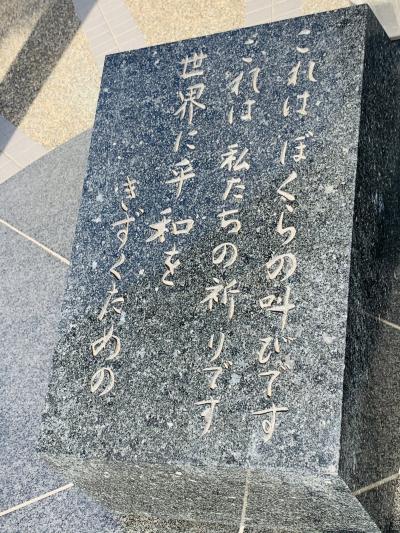 これは ぼくらの叫びです
これは 私たちの祈りです
世界に平和を
きずくための